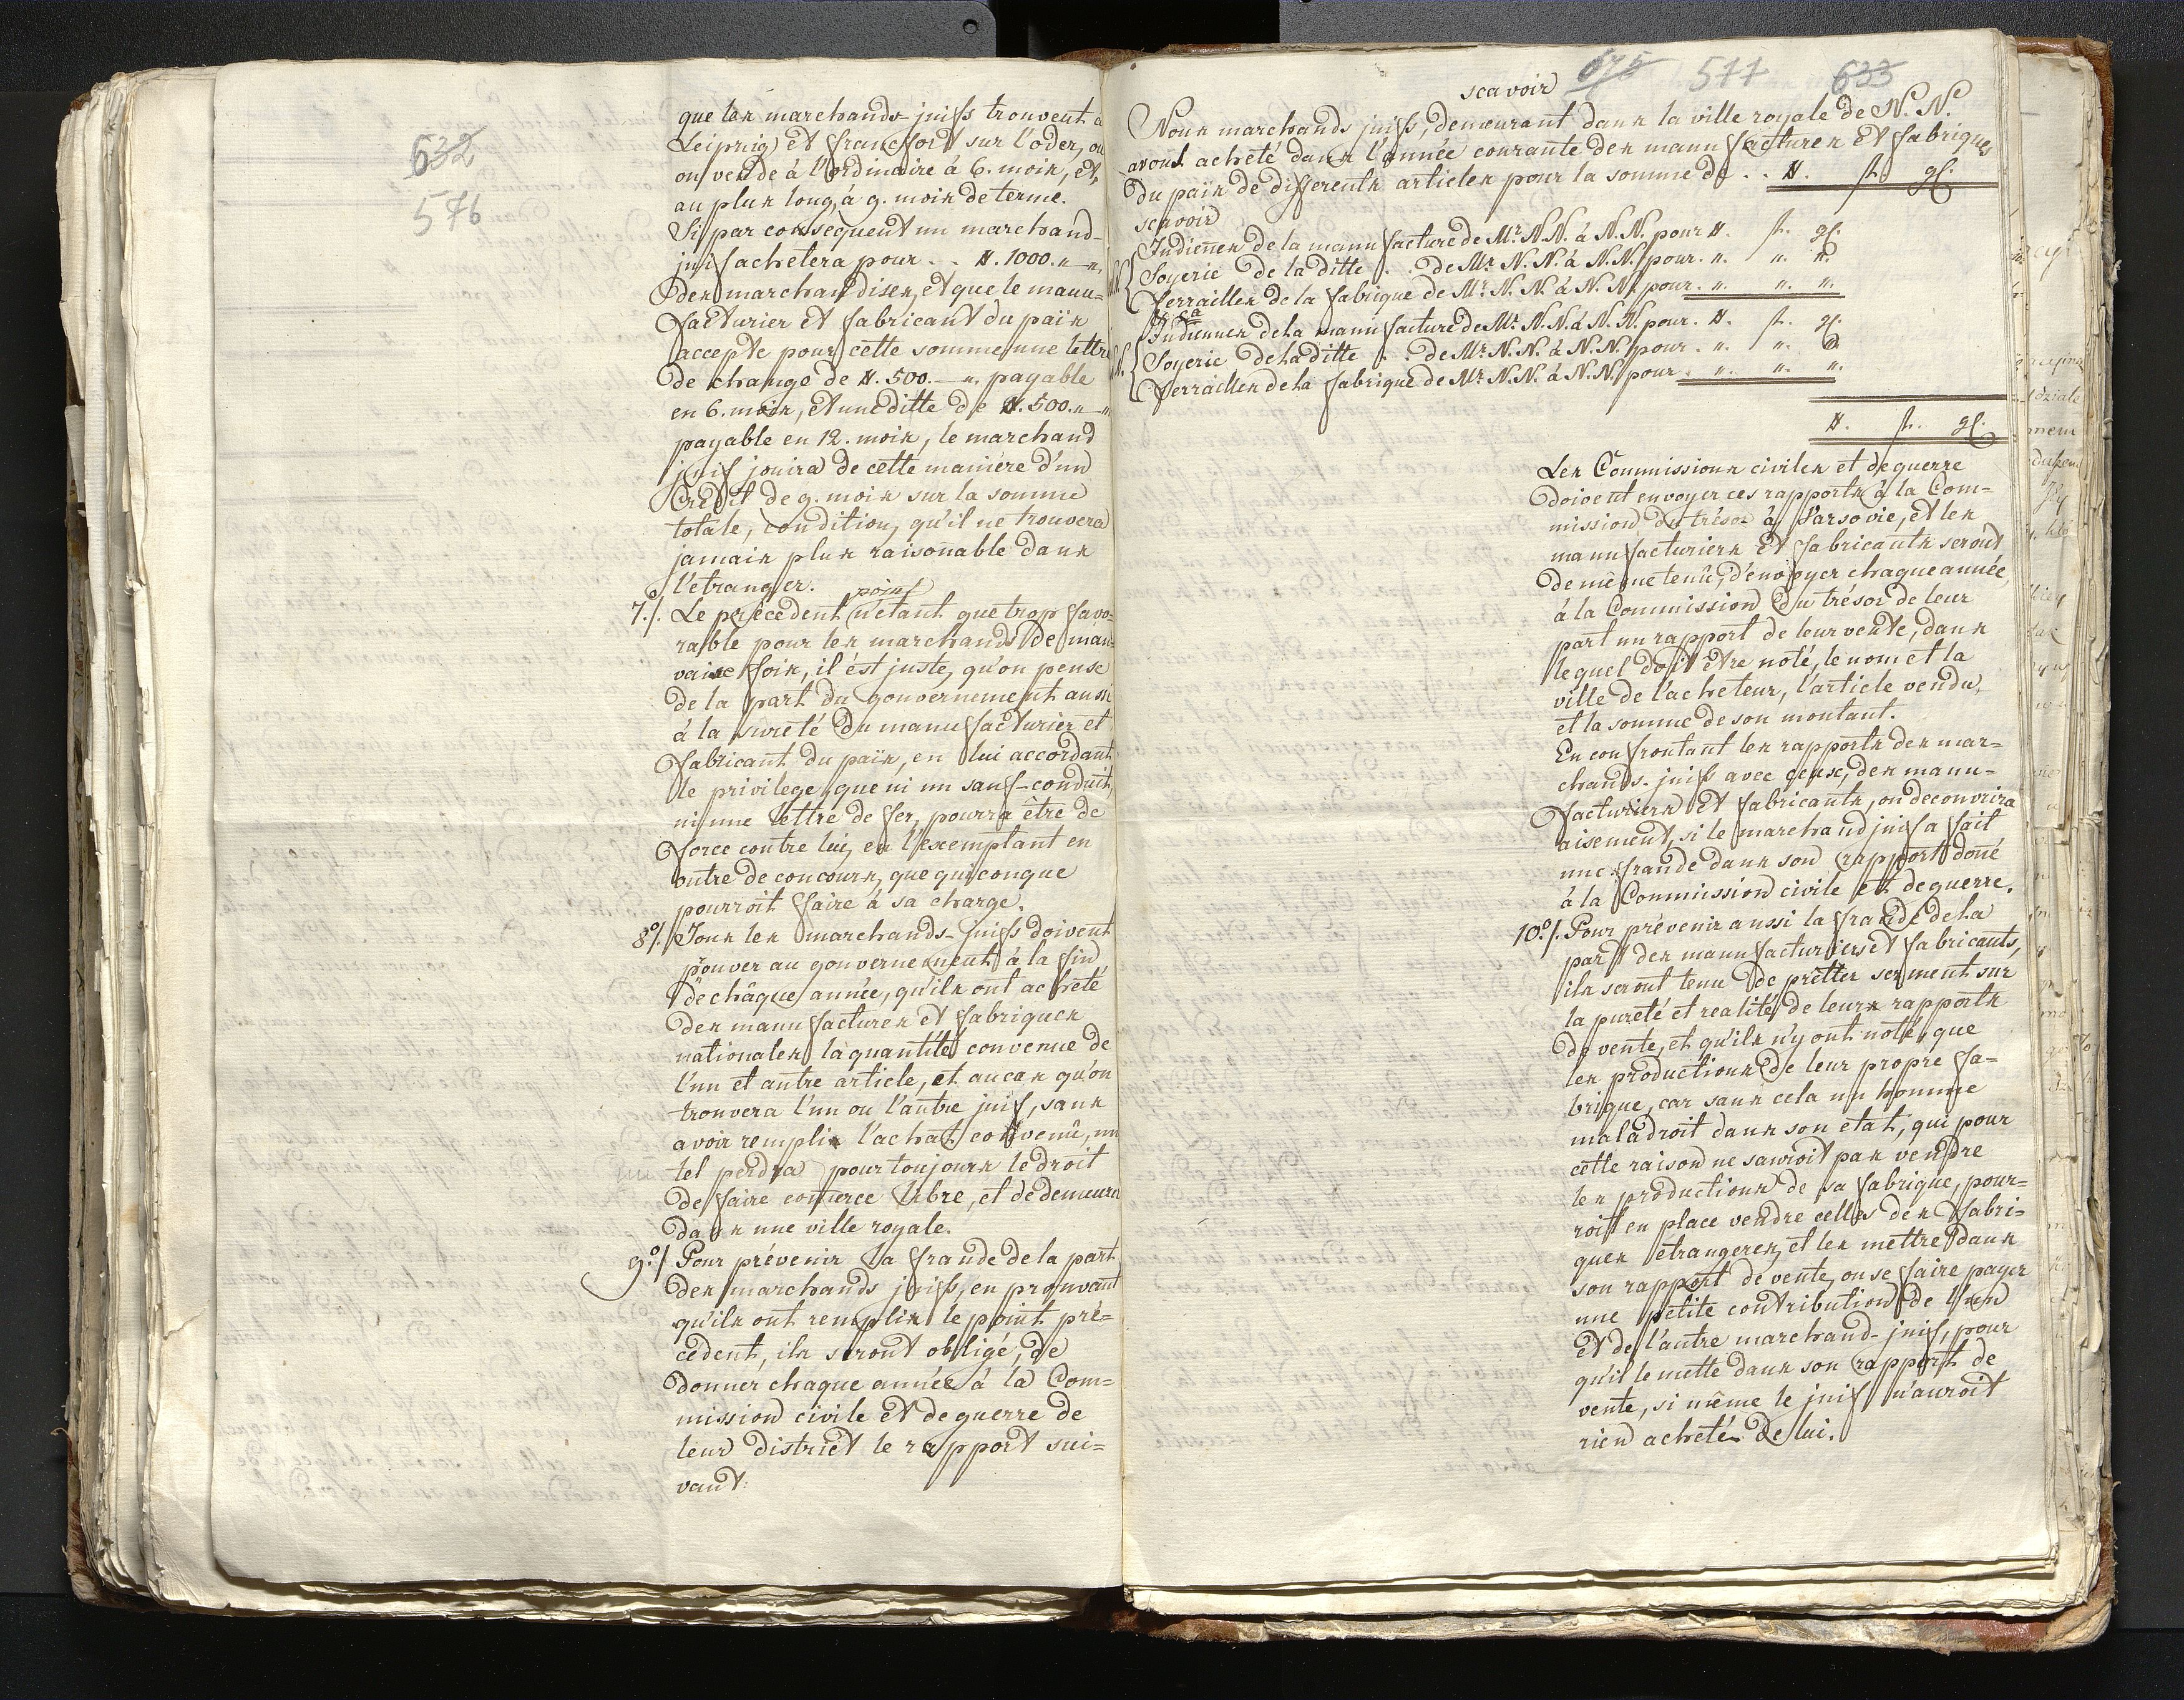 632
576
que les marchands-juifs trouvent a
Leipzig et francfort sur l'oder, où
on vende à l'ordinaire à 6. mois, et,
au plus long, à 9. mois de terme.
Si par consequent un marchand-
juif achetera pour . . #. 1000. " — "
des marchandises, et que le manu=
facturier et fabricant du païs
accepte pour cette somme une lettre
de change de #. 500. — ". payable
en 6. mois, et une ditte de #. 500. " — "
payable en 12. mois, le marchand
juif jouira de cette manière d'un
Credit de 9. mois sur la somme
totale, condition, qu'il ne trouvera
jamais plus raisoñable dans
l'etranger.
point
7./. Le précedent n'étant que trop favo=
rable pour les marchands de mau=
vaise fois, il ést juste, qu'on pense
de la part du gouvernement aussi
à la sureté du manufacturier et
fabricant du païs, en lui accordant
le privilege, que ni un sauf-conduit,
ni une lettre de fer, pourra être de
force contre lui, en l'exemptant en
outre de concours, que quiconque
pourroit faire à sa charge.
8°/. Tous les marchands-juifs doivent
prouver au gouvernement à la fin
de châque année, qu'ils ont acheté
des manufactures et fabriques
nationales la quantité convenue de
l'un et autre article, et au cas qu'on
trouvera l'un ou l'autre juif, sans
avoir remplis l'achat convenû, un
tel perdra pour toujours le droit
de faire comerce libre, et de demeurer
dans une ville royale.
9°/. Pour prévenir la fraude de la part
des marchands juifs, en prouvant
qu'ils ont remplis le point pré=
cédent, ils seront obligé, de
donner chaque année à la Com=
mission civile et de guerre de
leur district le rapport sui=
vant:
scavoir 675 577 633
Nous marchands juifs, demeurant dans la ville royale de N. N.
avons acheté dans l'année courante des manufactures et fabriques
du païs de differents articles pour la somme de . . #. fl. gl.
scavoir
Indieñes de la manufacture de Mr. N. N. à N. N. pour #. fl. gl.
Soyerie de la ditte . . de Mr. N. N. à N. N. pour . ". ". ".
Ferrailles de la fabrique de Mr. N. N. à N. N. pour . ". ". ".
Indiennes de la manufacture de Mr. N. N. à N. N. pour . #. fl. gl.
Soyerie de la ditte . . de Mr. N. N. à N. N. pour . ". ". ".
Ferrailles de la fabrique de Mr. N. N. à N. N. pour . ". ". ".
#. fl. gl.
Les Commissions civiles et de guerre
doivent envoyer ces rapports à la Com=
mission du trésor à Varsovie, et les
manufacturiers et fabricants seront
de même tenû, d'envoyer chaque année,
à la Commission du trésor de leur
part un rapport de leur vente, dans
lequel doit être noté, le nom et la
ville de l'acheteur, l'article vendu,
et la somme de son montant.
En confrontant les rapports des mar=
chands-juifs avec ceux, des manu=
facturiers et fabricants, on decouvrira
aisement, si le marchand juif a fait
une fraude dans son rapport doñé
à la Commission civile et de guerre.
10°/. Pour prévenir aussi la fraude de la
part des manufacturiers et fabricants,
ils seront tenu de prètter serment sur
la pureté et realité de leurs rapports
de vente, et qu'ils n'y ont noté, que
les productions de leur propre fa=
brique, car sans cela un homme
maladroit dans son etat, qui pour
cette raison ne sauroit pas vendre
les productions de sa fabrique, pour=
roit en place vendre celles des fabri=
ques étrangeres, et les mettre dans
son rapport de vente, ou se faire payer
une petite contribution de l'un
et de l'autre marchand-juif, pour
qu'il le mette dans son rapport de
vente, si même le juif n'auroit
rien acheté de lui.